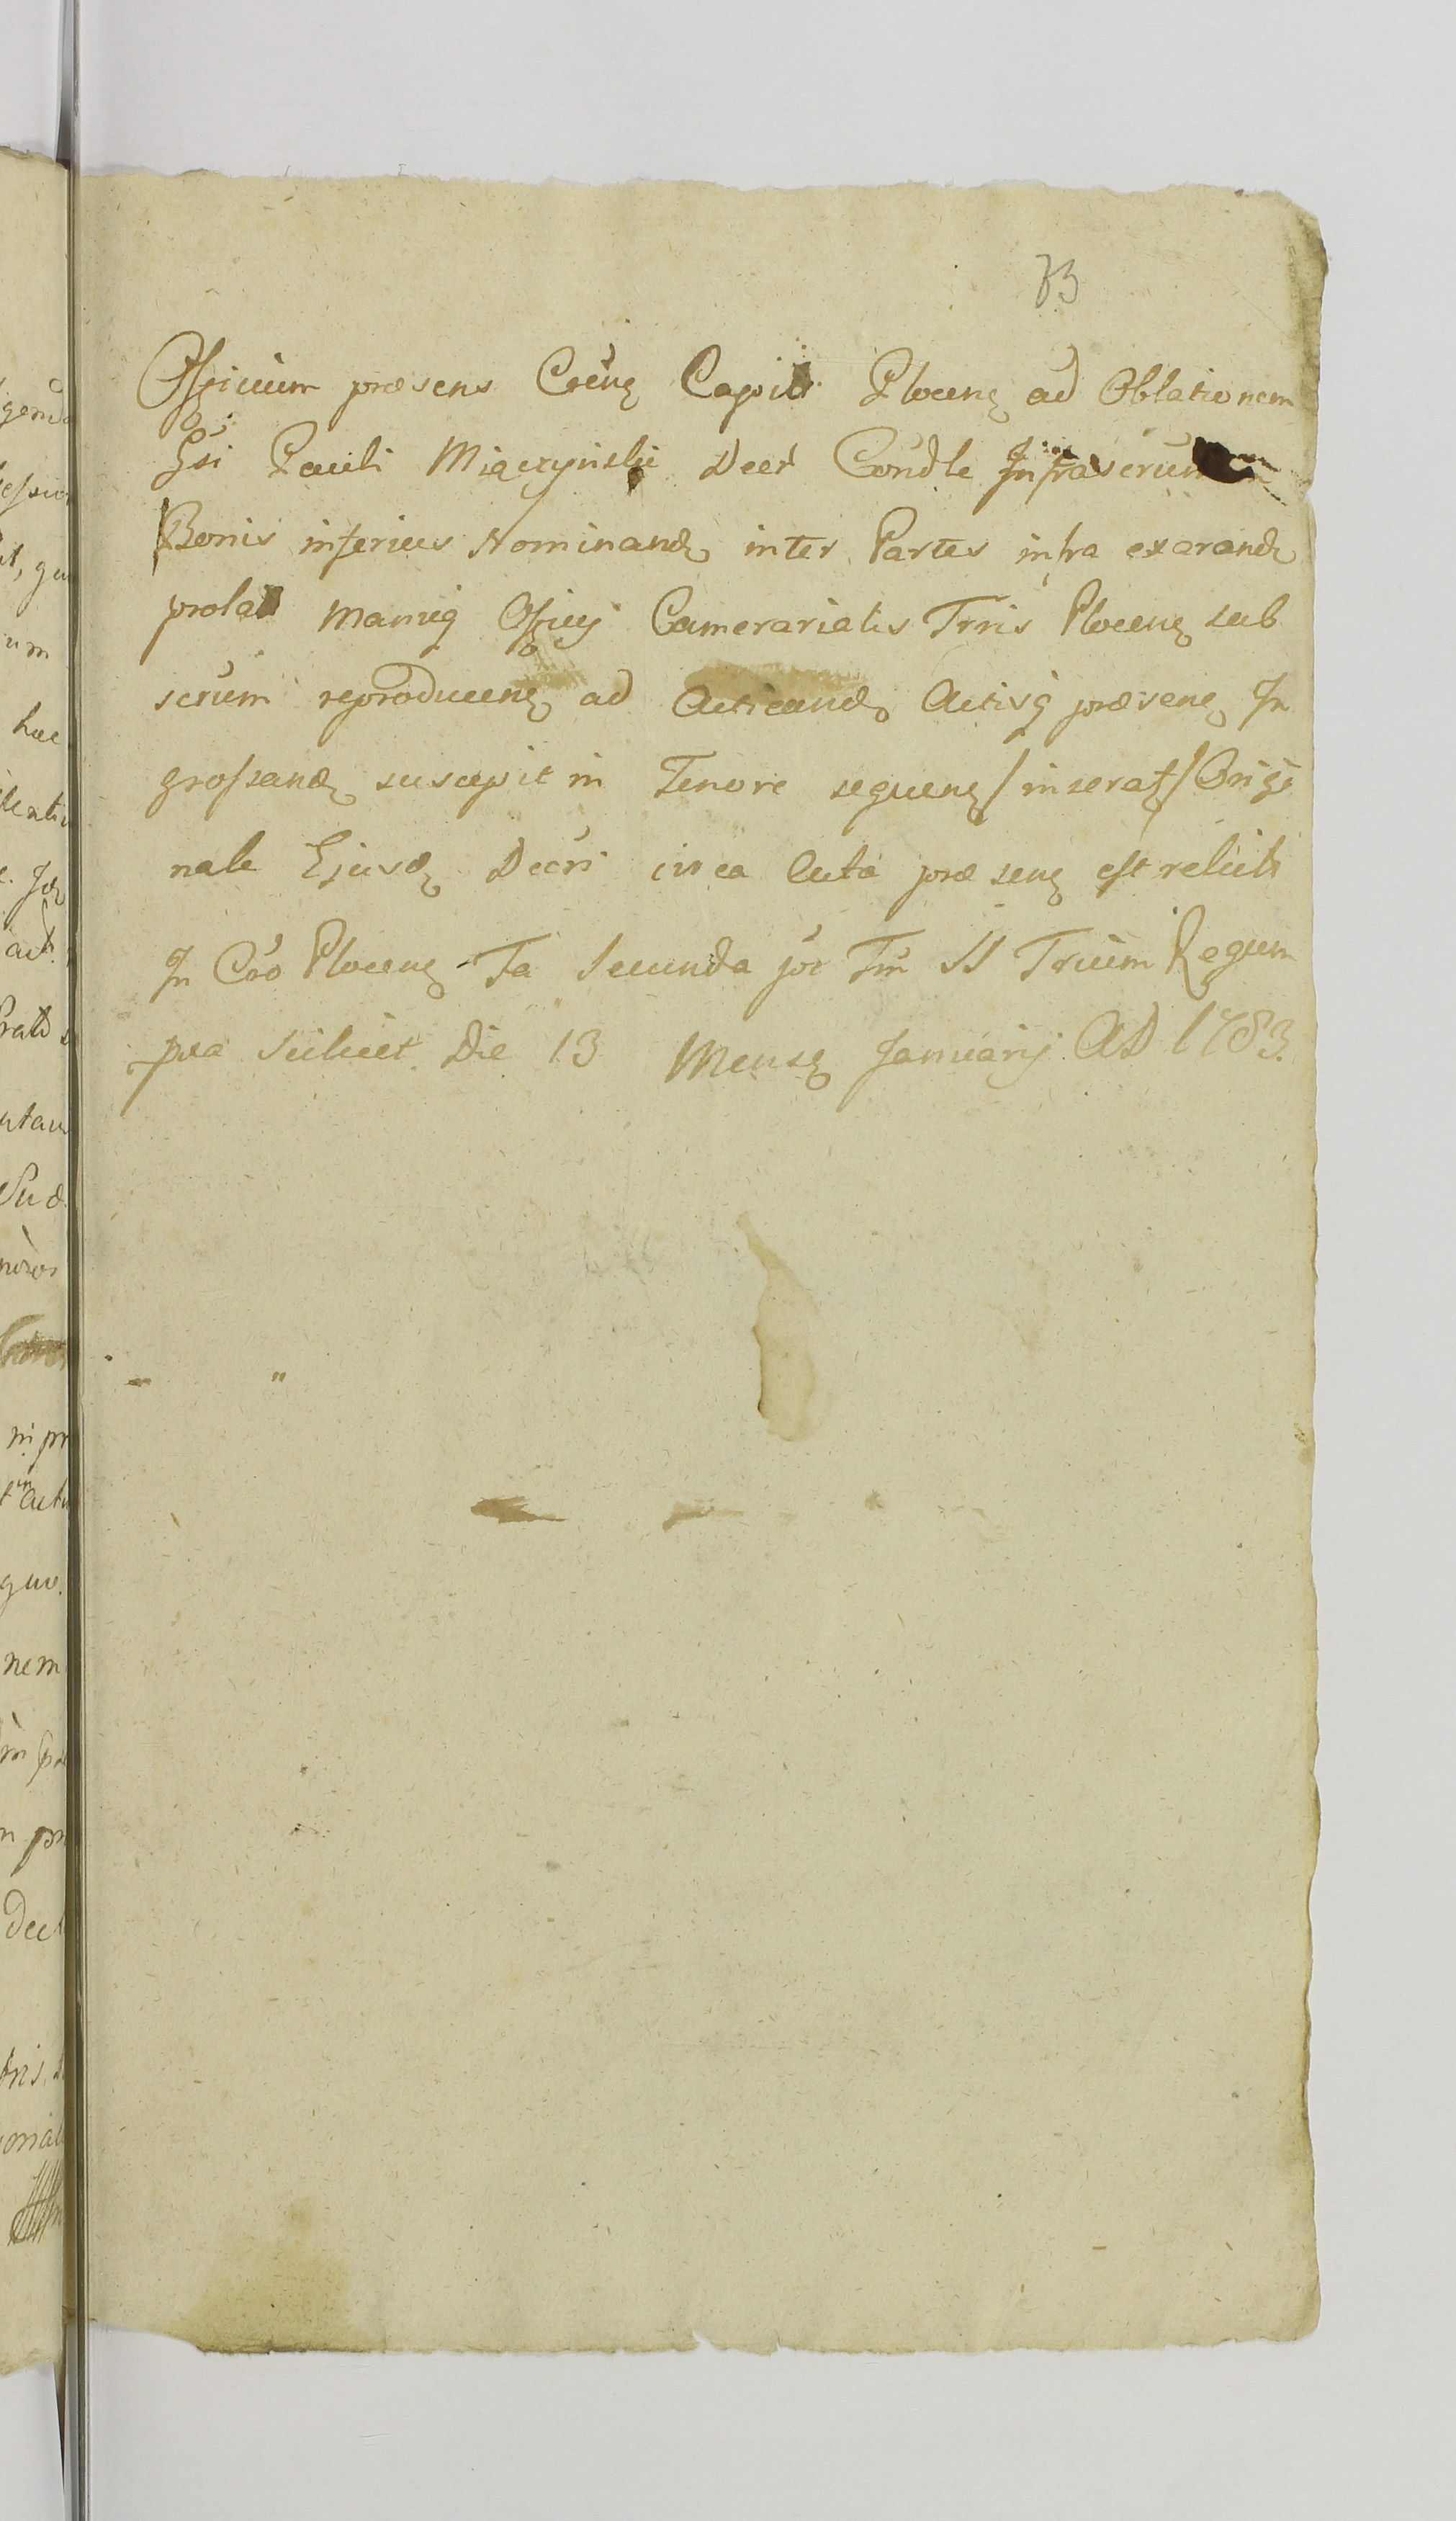 73
Officium præsens Crēnꝫ Capit Plocenꝫ ad Oblationem
Gsi Pauli Miączynski Decr Condle
Bonis inferius Nominandꝫ inter Partes infra exarandꝫ
prola Manuq Officij Camerarialis Trris Plocenꝫ sub
scrum reproducenꝫ ad Acticandꝫ Actisq præsenꝫ In
grossandꝫ suscepit in Tenore sequenꝫ / inseratꝫ / Origi
nale Ejusdꝫ Decri circa Acta præsenꝫ est relict
In Cro Plocenꝫ Fa Secunda pos Fm SS Trium Regum
pxa scilicet Die 13 Mensꝫ Januarij AD 1783.